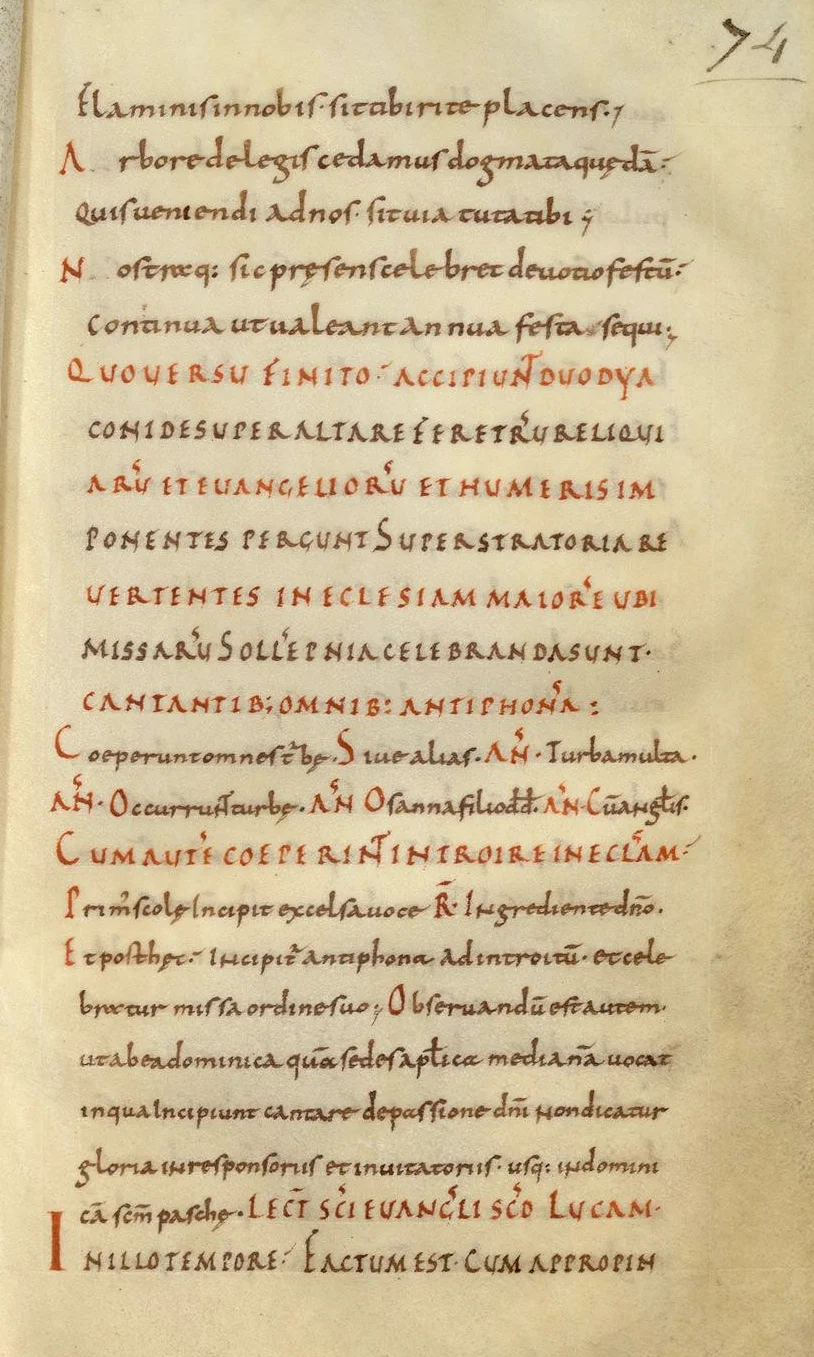 74
Flaminis in nobis· sit tibi rite placens·;
Arbore de legis cedamus dogmata quędā·
Quis veniendi ad nos· sit via tuta tibi;
Nostraeq: sic pręsens celebret devotio festū·
Continua ut valeant annua festa sequi;
QUO VERSU FINITO· ACCIPIUNT DUO DYA
CONI DESUPER ALTARE FERETRŪ RELIQUI
ARŪ ET EVANGELIORŪ ET HUMERIS IM
PONENTES PERGUNT SUPER STRATORIA RE
VERTENTES IN ECLESIAM MAIORĒ UBI
MISSARŪ SOLLĒPNIA CELEBRANDA SUNT·
CANTANTIB; OMNIB: ANTIPHONĀ:
Coeperunt omnes t̄bę· Sive alias· AÑ· Turba multa·
AÑ· Occurrunt turbę· AÑ Osanna filio dd̄· AÑ· Cū anglis·
CUM AUTĒ COEPERINT INTROIRE IN ECLAM·
Prim̄ scolę Incipit excelsa voce R̄· Ingrediente dn̄o·
Et post hęc· Incipit̄ antiphona· Ad introitū· et cele
braetur missa ordine suo; Observandū est autem·
ut ab ea dominica quā sedes aplica medianā vocat
in qua Incipiunt cantare de passione dn̄i Non dicatur
gloria in responsoriis et invitatoriis· usq: in domini
cā scm̄ paschę· LECT SCI EVANGLI SCD LUCAM·
IN ILLO TEMPORE· FACTUM EST· CUM APPROPIN